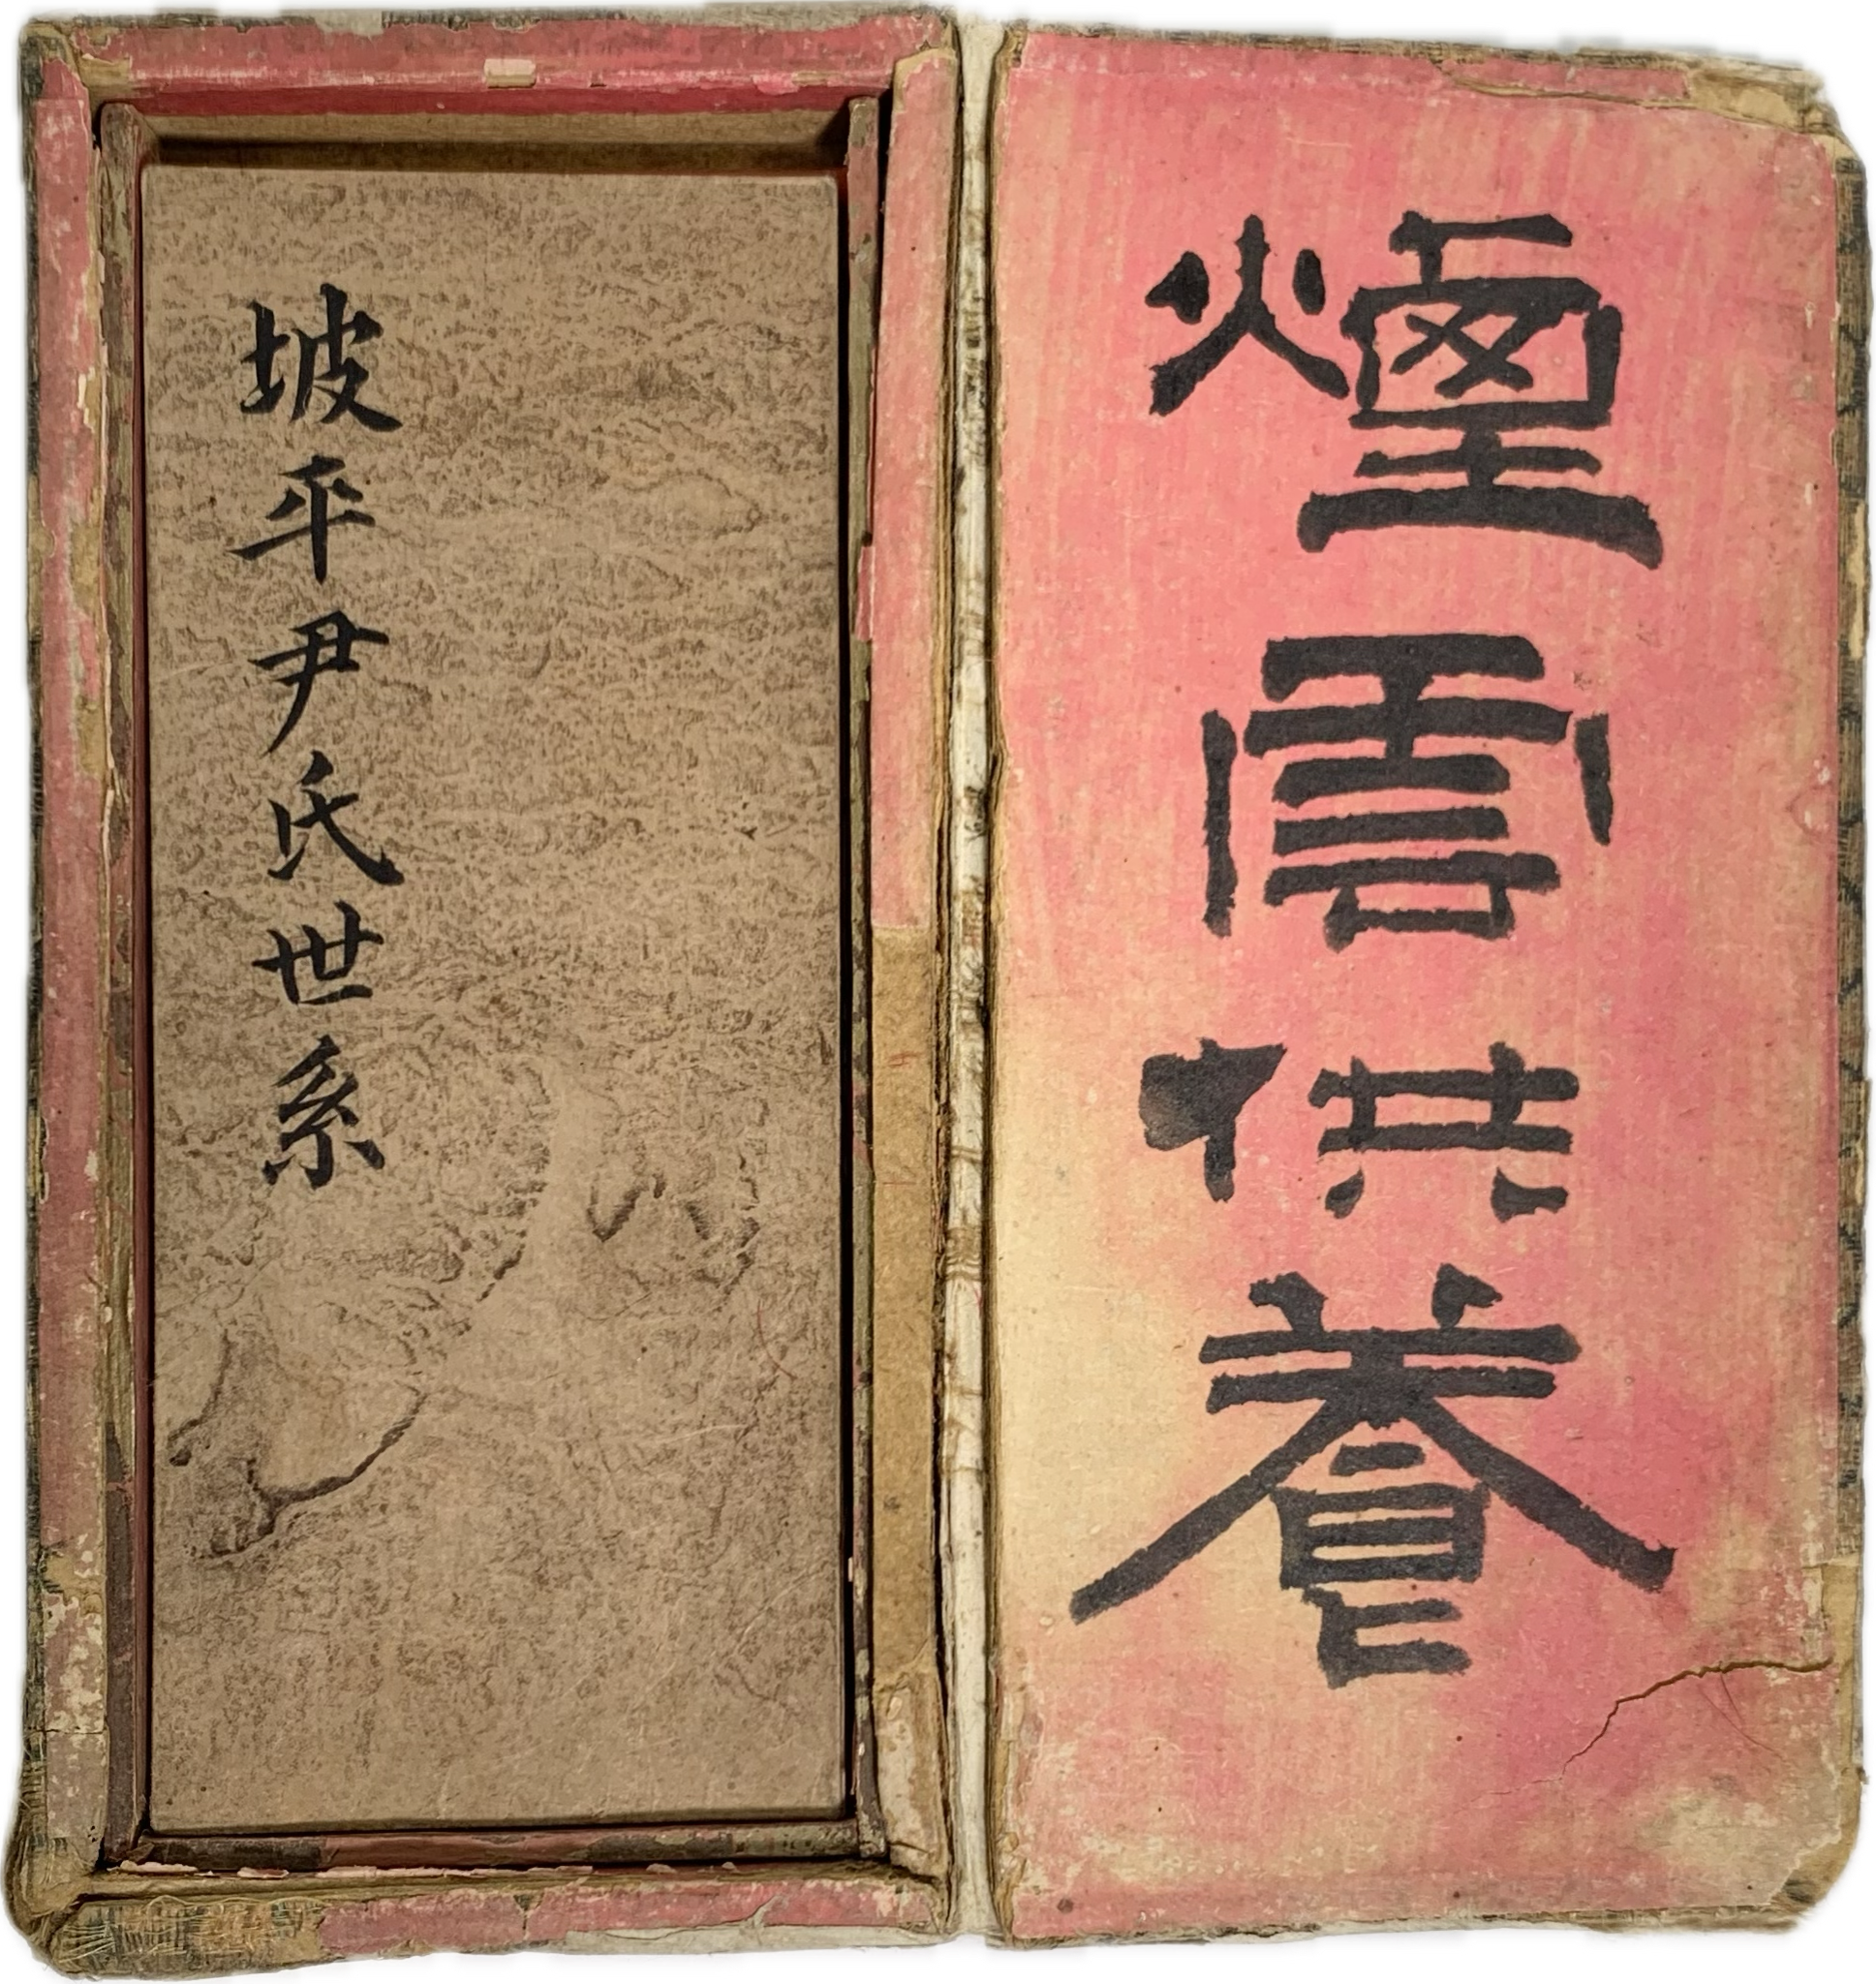 煙雲供養
坡平尹氏世系